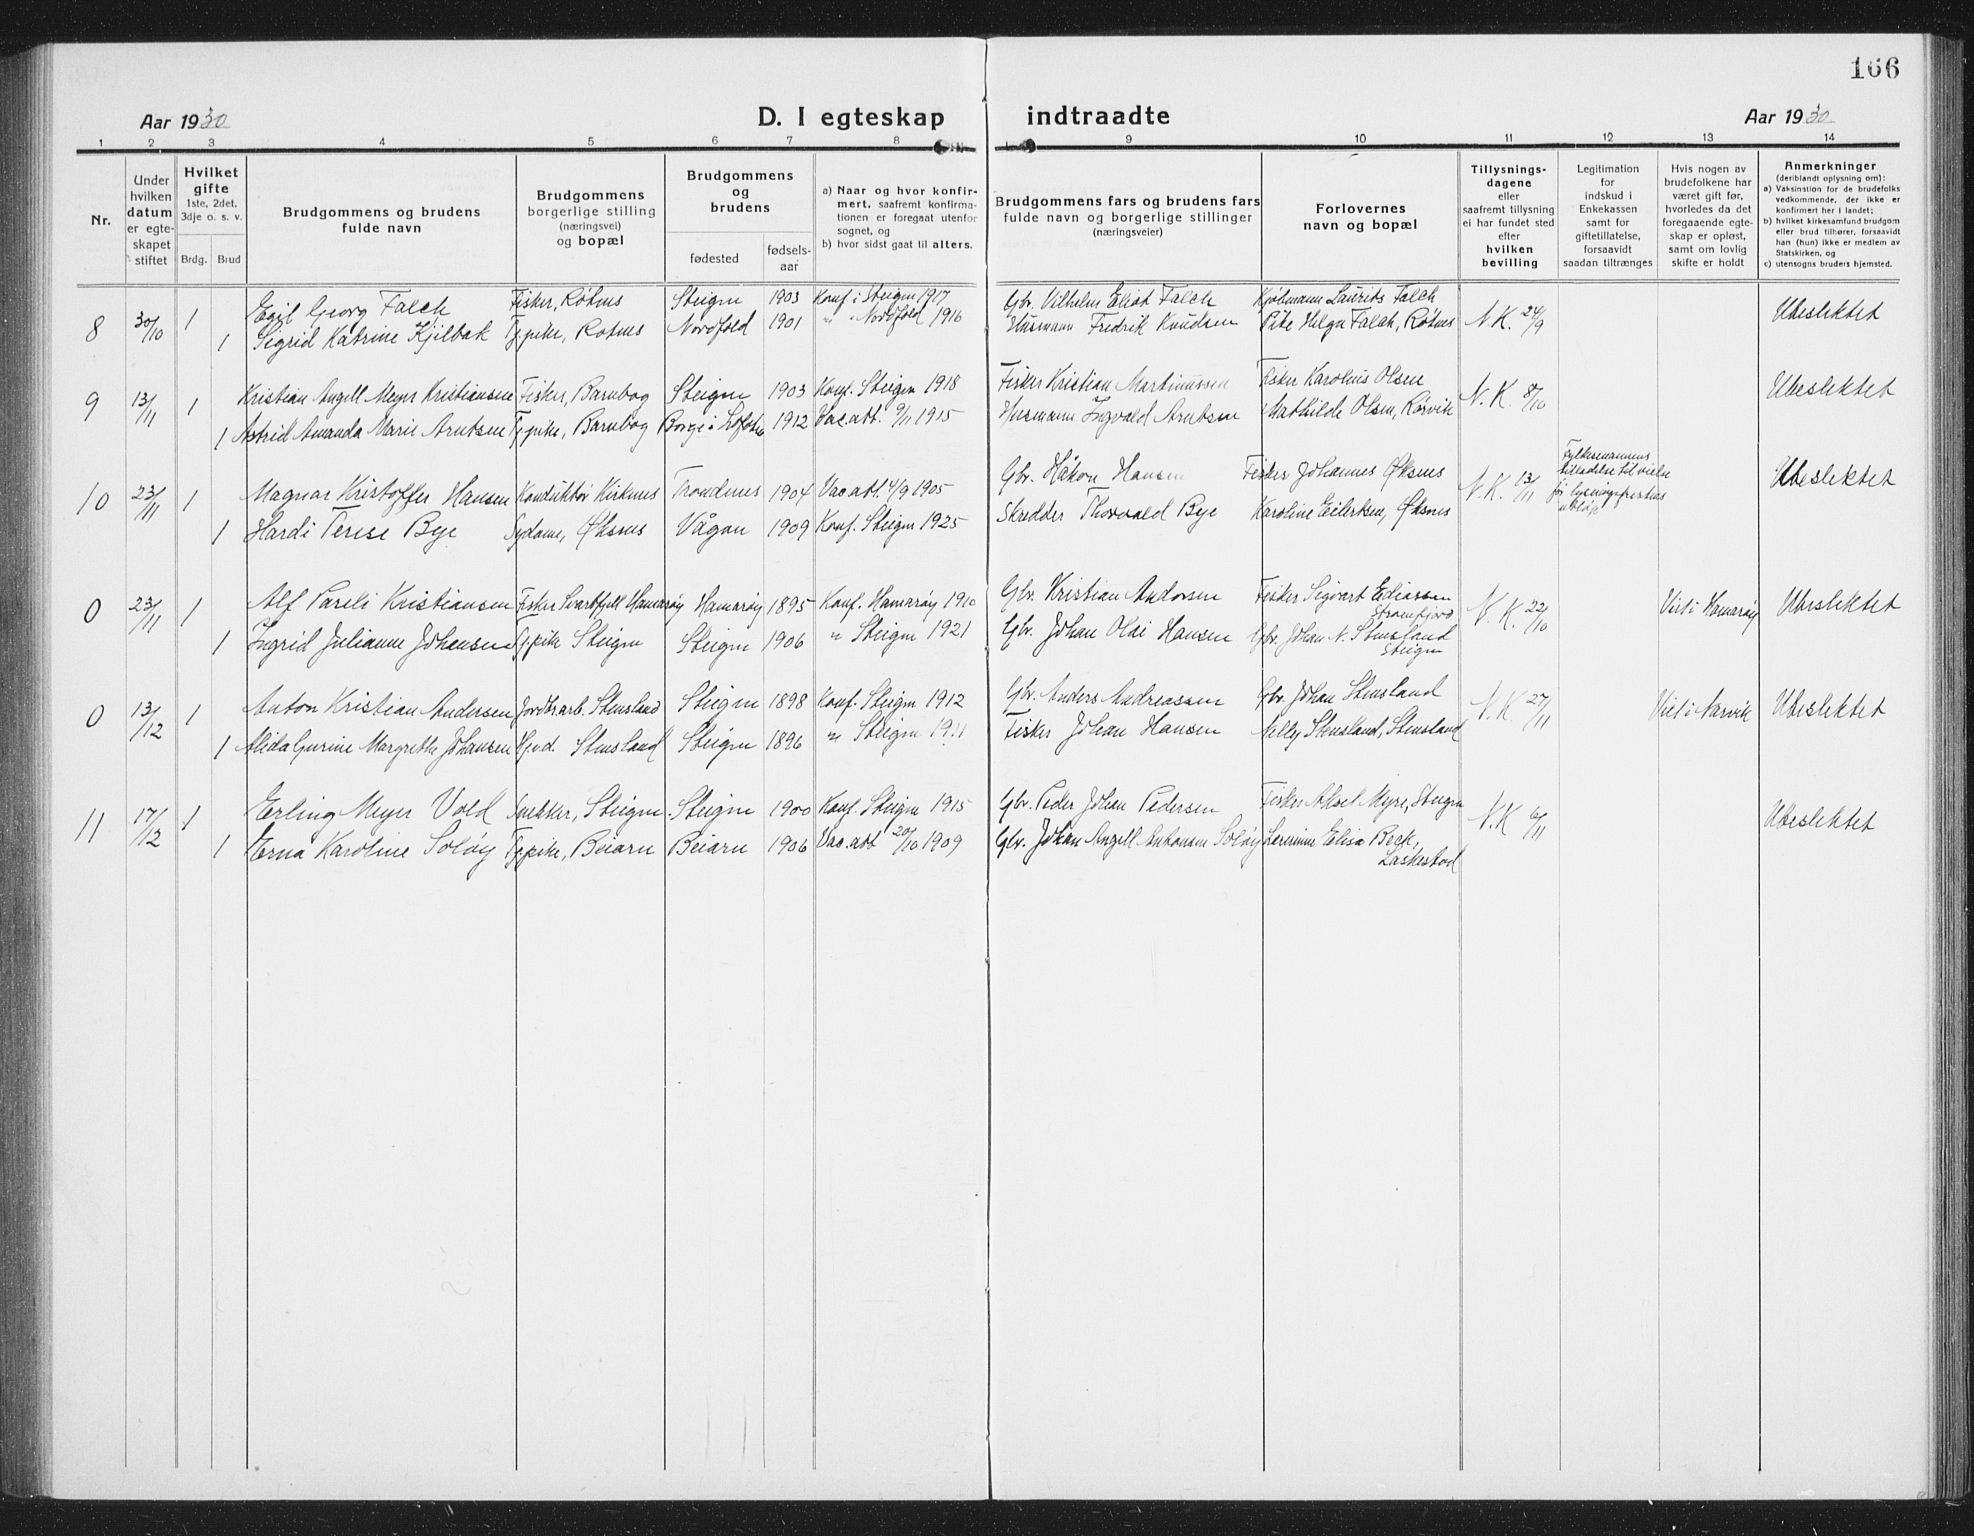 166
Aar 1930
D. I egteskap indtraadte
Aar 1930
1 2 3 4 5 6 7 8 9 10 11 12 13 14
Nr.
Under hvilken datum er egteskapet stiftet
Hvilket gifte 1ste, 2det, 3dje o. s. v.
Brdg. Brud
Brudgommens og brudens fulde navn
Brudgommens borgerlige stilling (næringsvei) og bopæl
Brudgommens og brudens
fødested
fødselsaar
a) Naar og hvor konfirmert, saafremt konfirmationen er foregaat utenfor sognet, og
b) hvor sidst gaat til alters.
Brudgommens fars og brudens fars fulde navn og borgerlige stillinger (næringsveier)
Forlovernes navn og bopæl
Tillysningsdagene eller saafremt tillysning ei har fundet sted efter hvilken bevilling
Legitimation for indskud i Enkekassen samt for giftetillatelse, forsaavidt saadan tiltrænges
Hvis nogen av brudefolkene har været gift før, hvorledes da det foregaaende egteskap er opløst, samt om lovlig skifte er holdt
Anmerkninger (deriblandt oplysning om):
a) Vaksinstion for de brudefolks vedkommende, der ikke er konfirmert her i landet;
b) hvilket kirkesamfund brudgom eller brud tilhører, forsaavidt han (hun) ikke er medlem av Statskirken, og
c) utensogns bruders hjemsted.
8 30/10 1 Egil Georg Falch Fisker, Rötnes Steigen 1903 Konf. i Steigen 1917 Gbr. Vilhelm Eliot Falch Kjöbmann Laurits Falch N.K. 24/9 Ubeslektet
1 Sigrid Katrine Kjilbak Tj.pike, Rotnes Nordfold 1901 " " Nordfold 1916 Husmann Fredrik Knudsen Pike Helga Falch, Rötnes
9 13/11 1 Kristian Angell Meyer Kristiansen Fisker, Barnbog Steigen 1903 Konf. Steigen 1918 Fisker Kristian Martinussen Fisker Karolius Olsen N.K. 8/10 Ubeslektet
1 Astrid Amanda Marie Arntsen Tj.pike, Barnbog Borge i Lofoten 1912 Vac.att. 9/11 1915 Husmann Ingvald Arntsen Mathilde Olsen, Rörvik
10 23/11 1 Magnar Kristoffer Hansen Konduktör Kirkenes Trondenes 1904 Vac.att. 4/9 1905 Gbr. Håkon Hansen Fisker Johannes Öksnes N.K. 13/11 Fylkesmannens tilladelse til vielse før lysningsfristens utløp Ubeslektet
1 Hardi Terese Bye Sydame, Øksnes Vågan 1909 Konf. Steigen 1925 Skredder Thorvald Bye Karoline Eilertsen, Øksnes
0 23/11 1 Alf Pareli Kristiansen Fisker Svartfjell Hamarøy Hamarøy 1895 Konf. Hamarøy 1910 Gbr. Kristian Andersen Fisker Sigvart Ediassen N.K. 22/10 Viet i Hamarøy Ubeslektet
1 Ingrid Julianne Johansen Tj.pike Steigen Steigen 1906 " Steigen 1921 Gbr. Johan Olai Hansen Gbr. Johan N. Stensland Steigen
0 13/12 1 Anton Kristian Andersen Jordbr.arb. Stensland Steigen 1898 Konf. Steigen 1912 Gbr. Anders Andreassen Gbr. Johan Stensland N.K. 27/11 Viet i Narvik Ubeslektet
1 Alida Gurine Margrethe Johansen Hjvd. Stensland Steigen 1896 " Steigen 1911 Fisker Johan Hansen Nelly Stensland, Stensland
11 17/12 1 Erling Meyer Vold Snekker, Steigen Steigen 1900 Konf. Steigen 1915 Gbr. Peder Johan Pedersen Fisker Aksel Myre, Steigen N.K. 6/11 Ubeslektet
1 Erna Karoline Soløy Tj.pike, Beiarn Beiarn 1906 Vac.att 20/10 1909 Gbr. Johan Angell Antonsen Soløy Lærerinne Elisa Beck, Laskestad